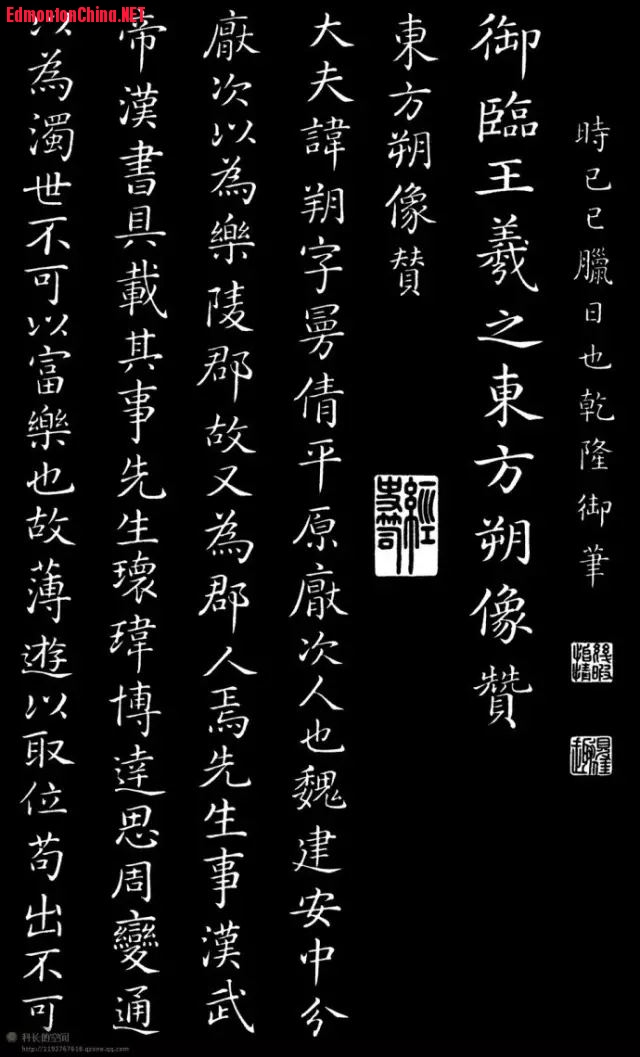 EdmontonChina.NET
時己巳臘日也乾隆御筆
幾暇怡情
得佳趣
御臨王羲之東方朔像贊
東方朔像贊
大夫諱朔字曼倩平原厭次人也魏建安中分
厭次以為樂陵郡故又為郡人焉先生事漢武
帝漢書具載其事先生瓌瑋博達思周變通
以為濁世不可以富樂也故薄遊以取位苟出不可
科长的空间